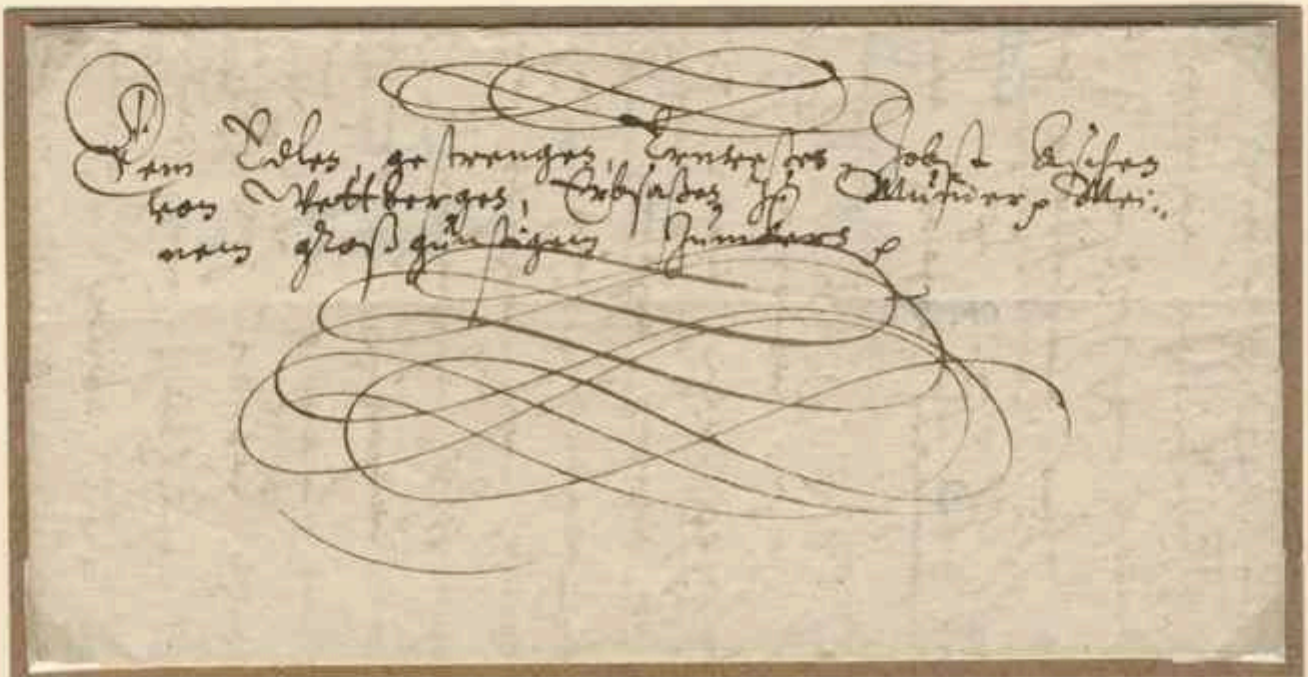 Dem Edlen, gestrengen, Ernvesten Jobst Aschen
von Wettbergen, Erbsaßen zu Münder p Mei„
nem großgünstigem Junckern p